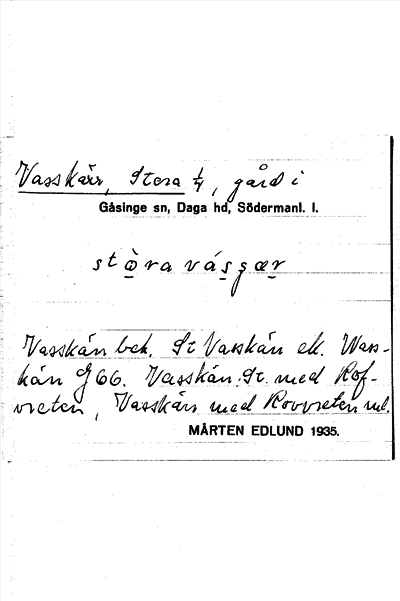 Vasskärr, Stora ¼, gård i
Gåsinge sn, Daga hd, Södermanl. l.
stò̱ra vás̱gæṟ
Vasskärr bek. St Vasskärr ek. Wass-
kärr G66. Vasskärr. St. med Rof-
vreten, Vasskärr med Rovvreten
MÅRTEN EDLUND 1935.